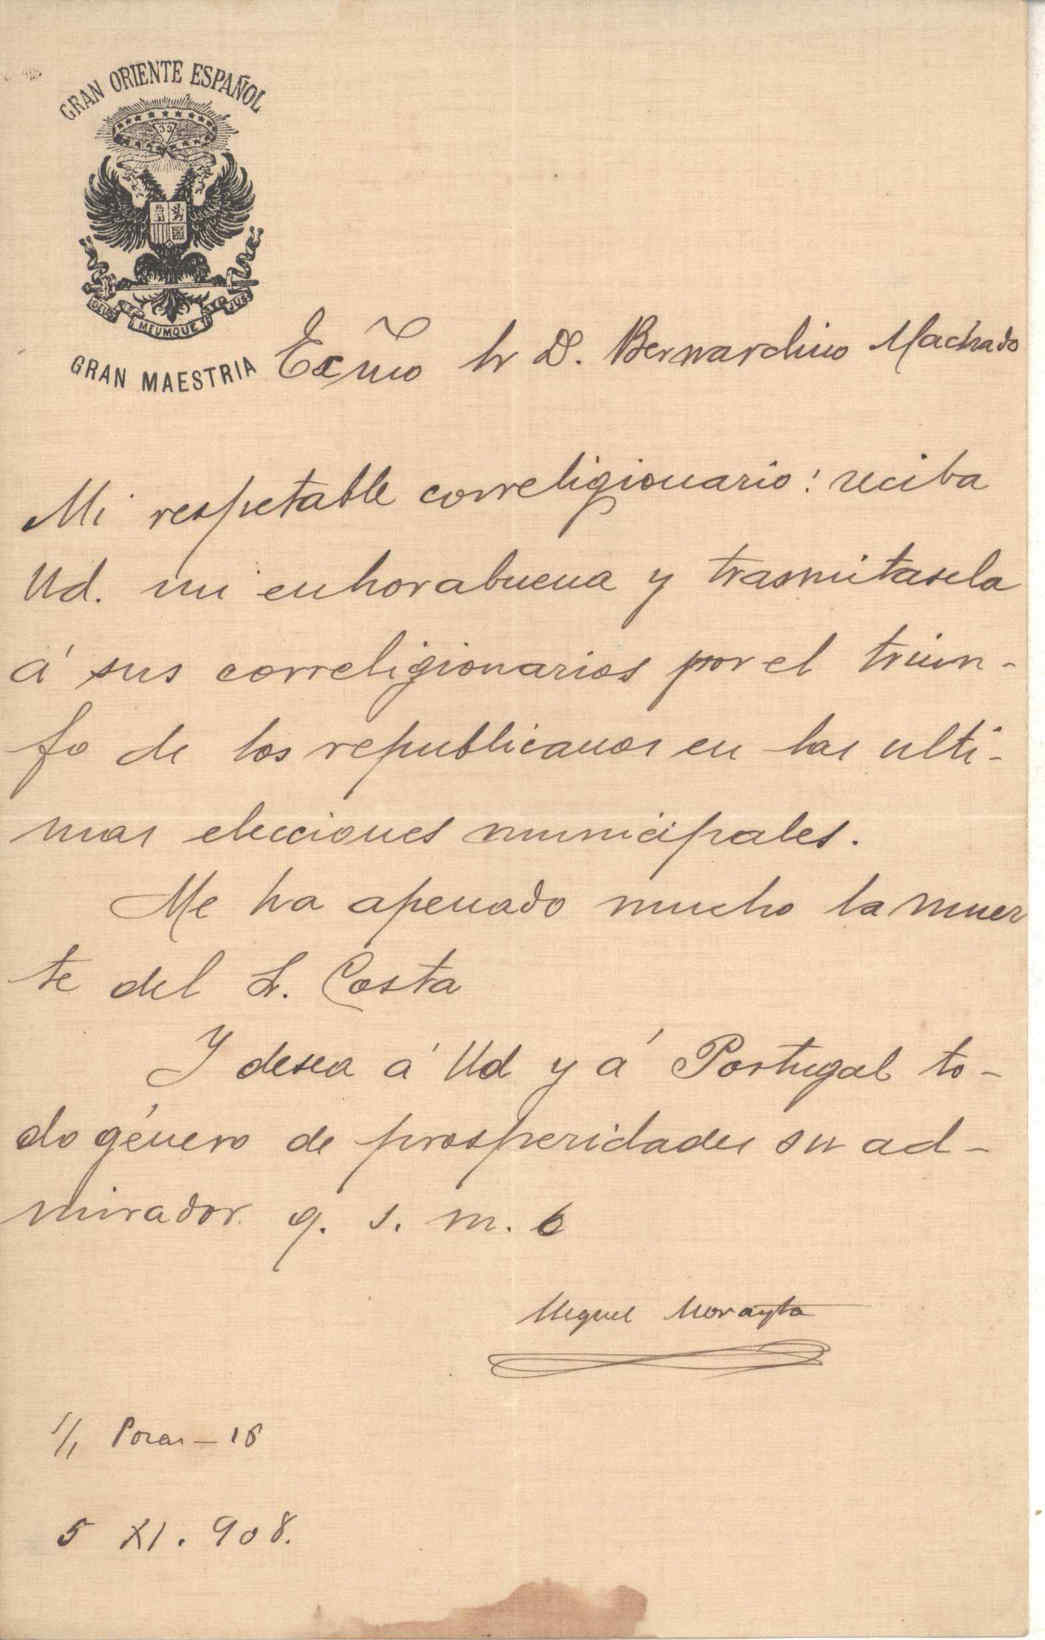 GRAN ORIENTE ESPAÑOL
33
DEUS MEUMQUE JUS
GRAN MAESTRIA
Excmo Sr D. Bernardino Machado
Mi respetable correligionario: reciba
Ud. mi enhorabuena y trasmitasela
á sus correligionarios por el triun-
fo de los republicanos en las ulti-
mas elecciones municipales.
Me ha apenado mucho la muer
te del Sr. Costa
Y desea á Ud y á Portugal to-
do género de prosperidades su ad-
mirador q. s. m. b
Miguel Morayta
S/c Pozas - 18
5 XI. 908.